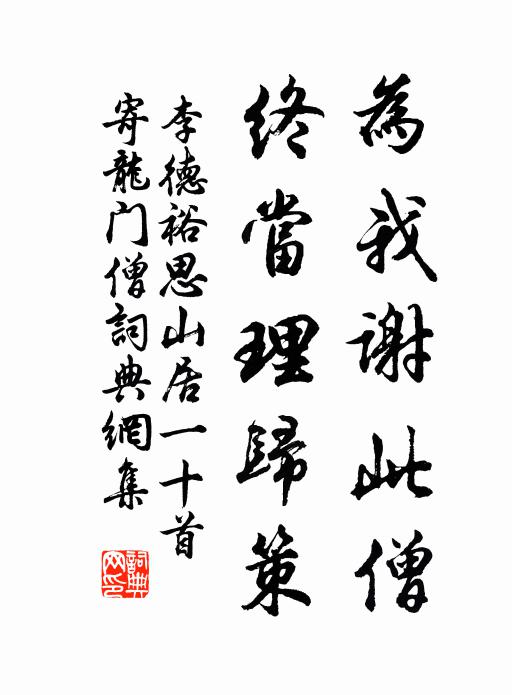 為我謝此僧
終當理歸策
李德裕思山居一十首
寄龍门僧詞典網集
詞典
网印